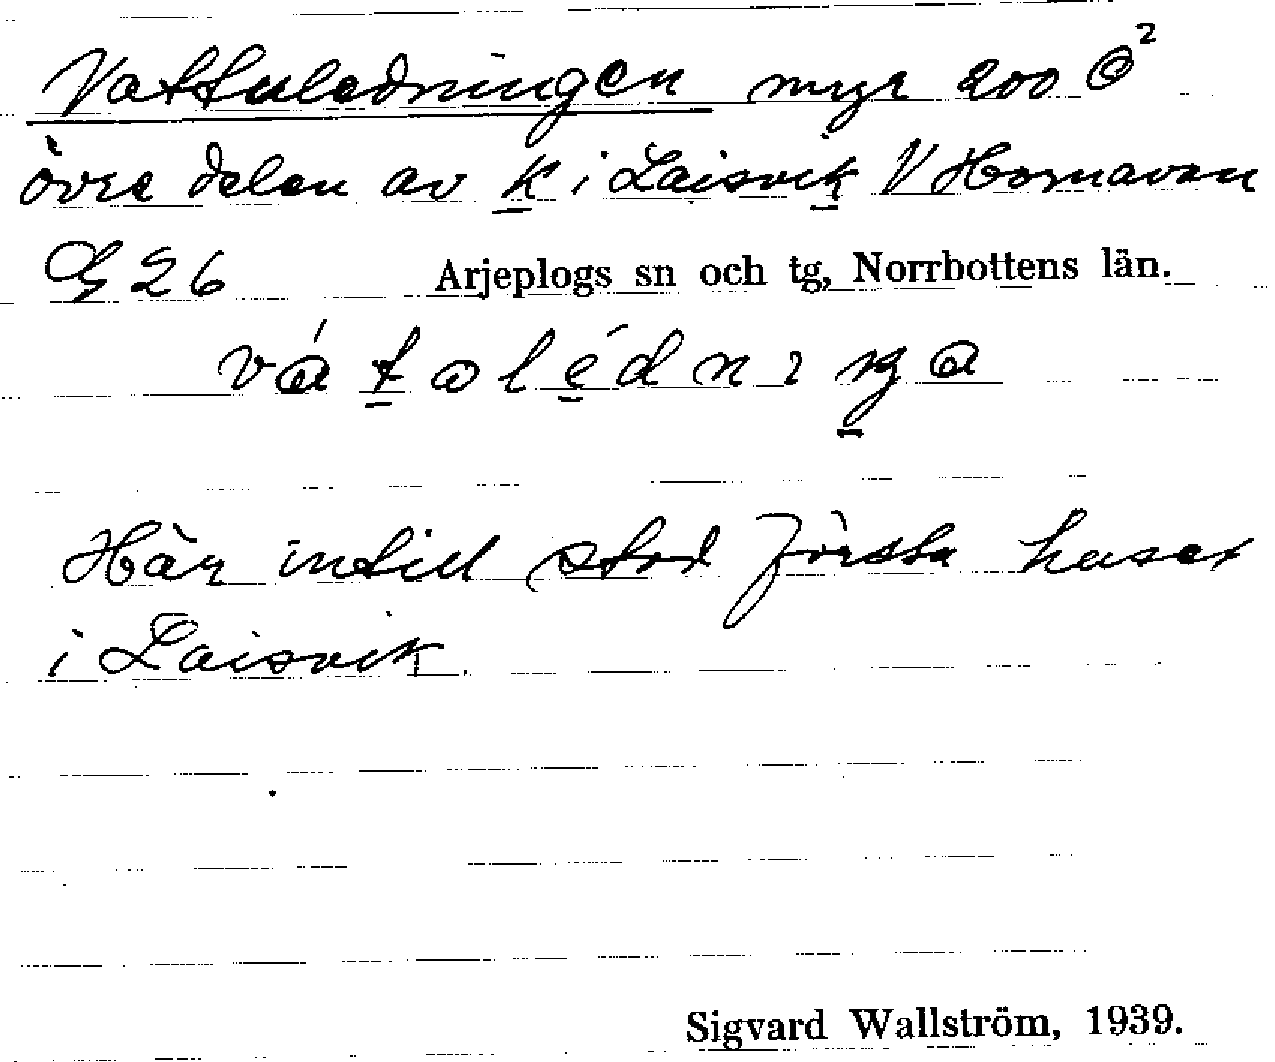 Vattuledningen myr 200 @²
övre delen av k i Laisvik V Hornavan
G 26 Arjeplogs sn och tg, Norrbottens län.
Här intill stod första huset
i Laisvik.
Sigvard Wallström, 1939.